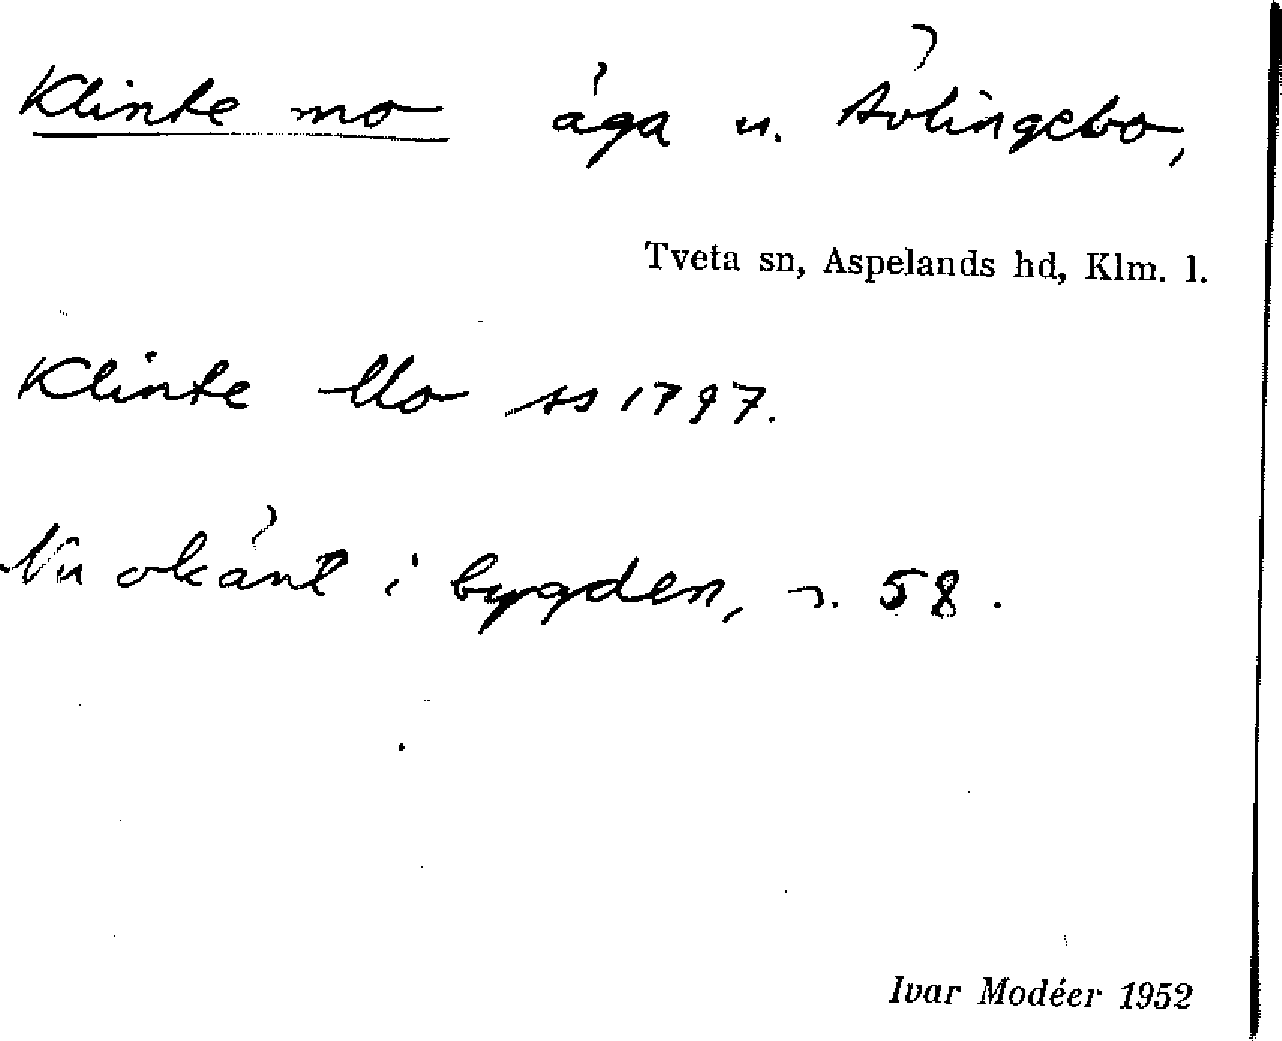 Klinte mo äga u. Ävlingebo,
Tveta sn, Aspelands hd, Klm. l.
Klinte Mo ss 1797.
Nu okänt i bygden, 58.
Ivar Modéer 1952